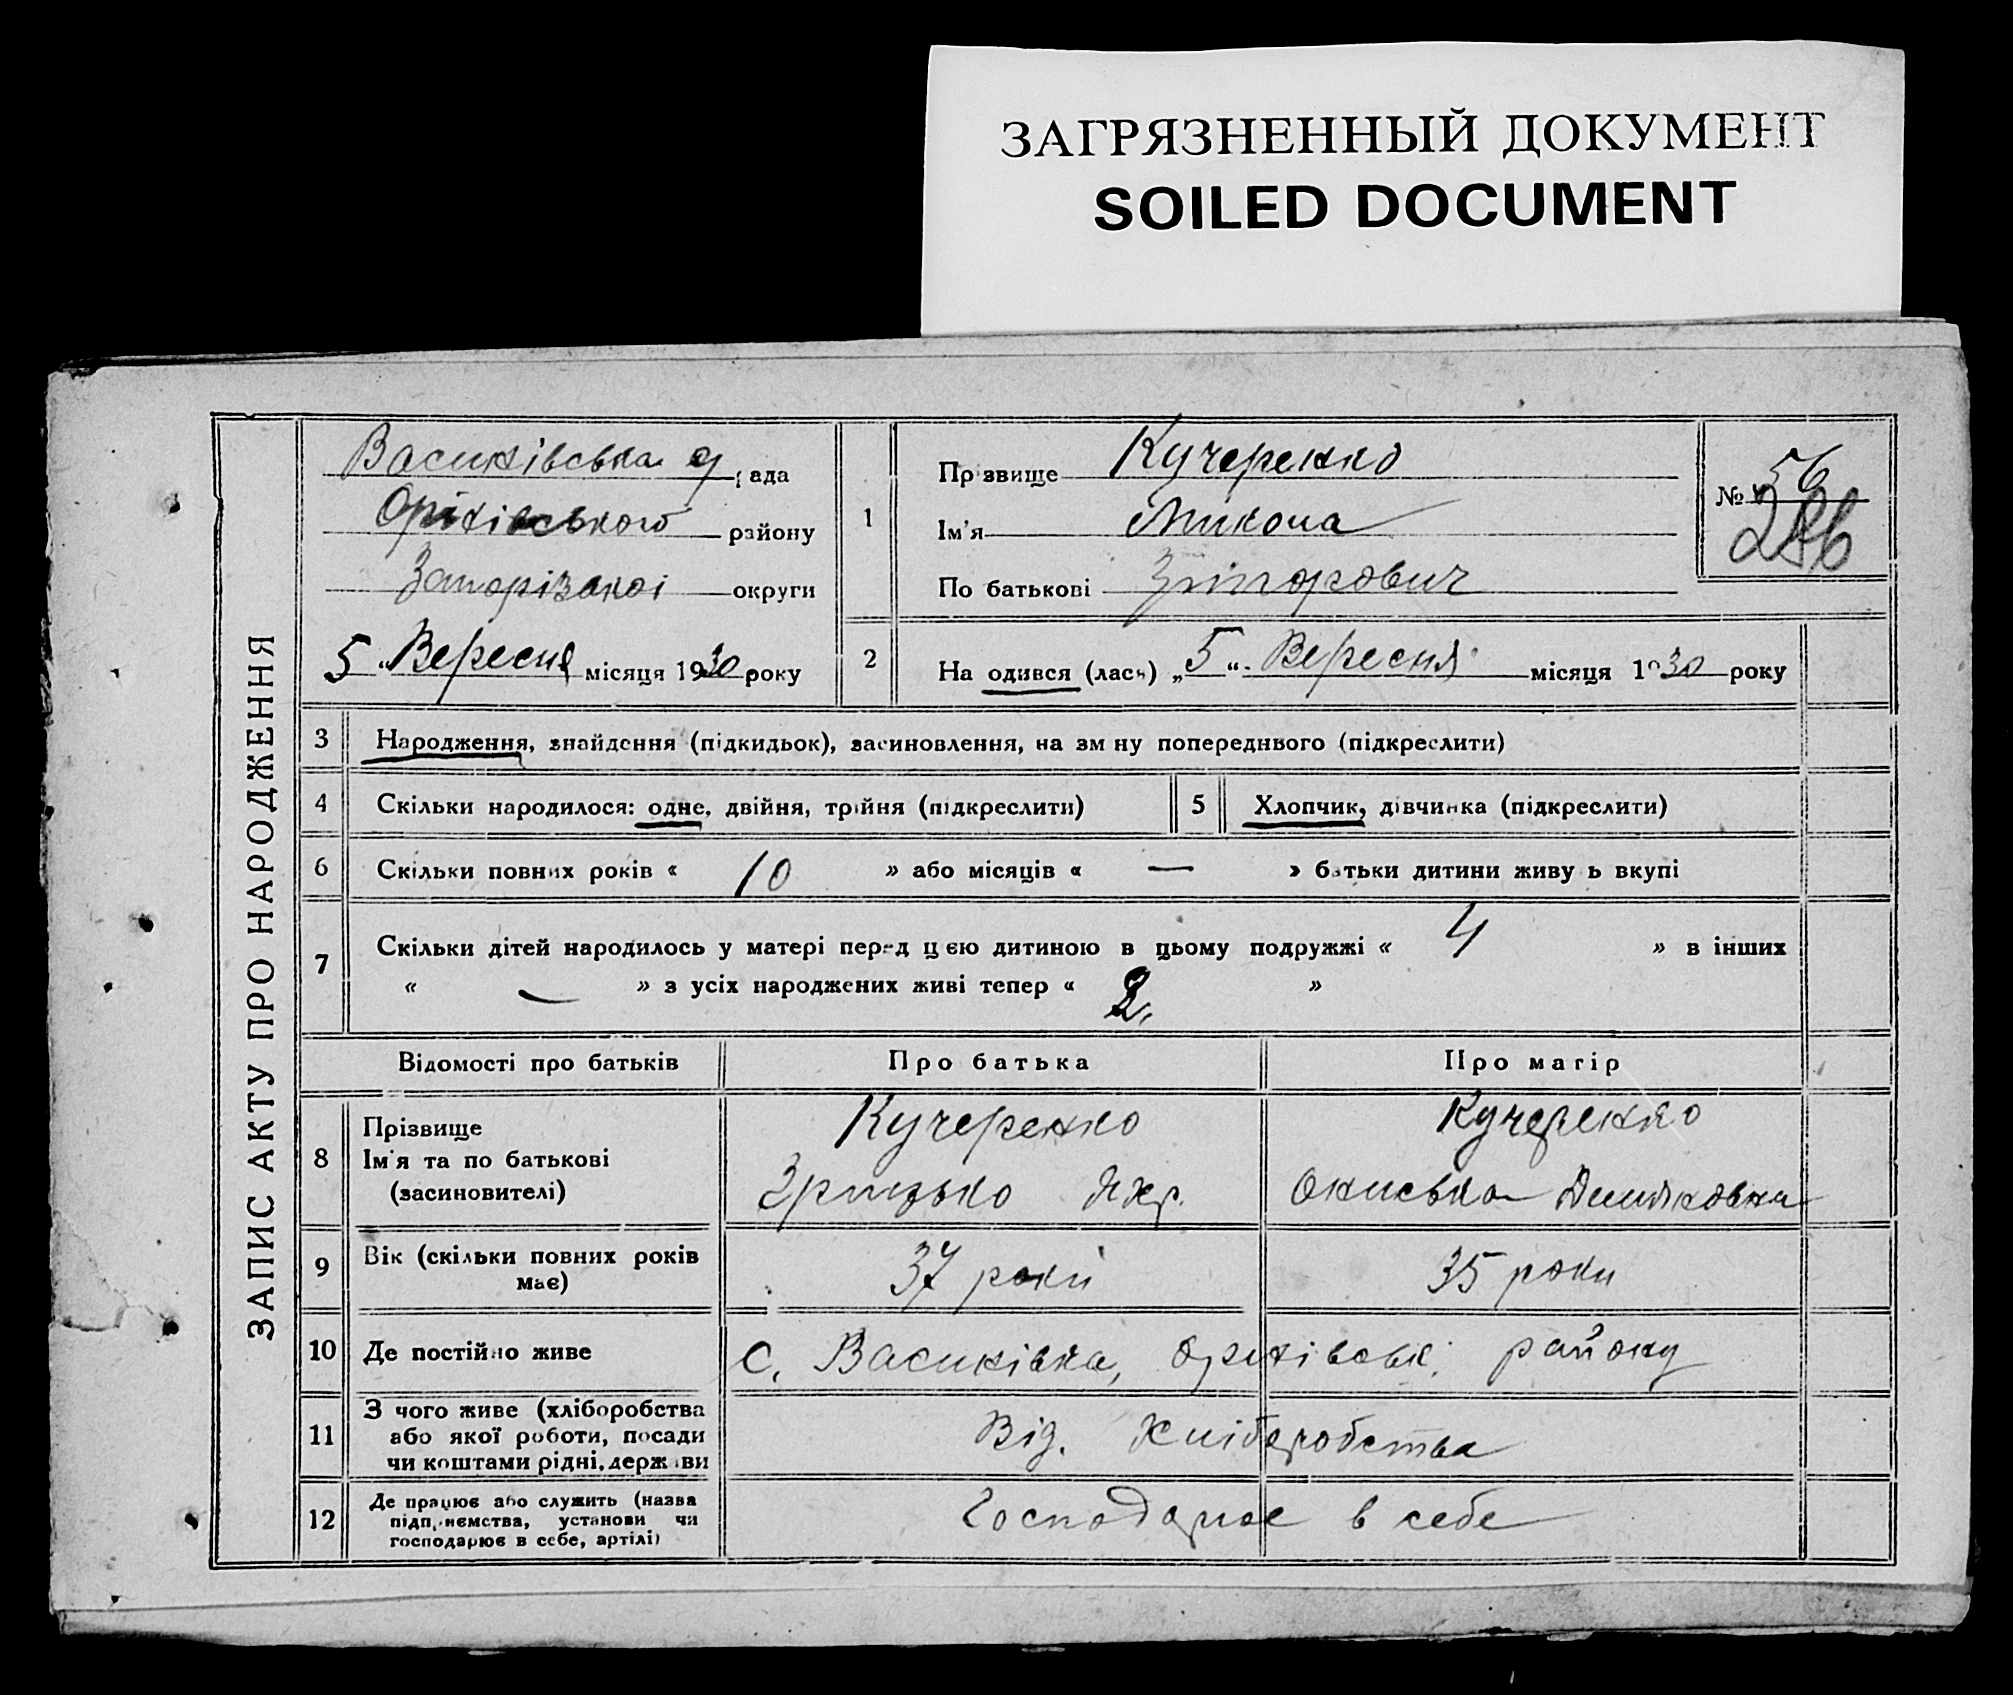 ЗАГРЯЗНЕННЫЙ ДОКУМЕНТ
SOILED DOCUMENT
ЗАПИС АКТУ ПРО НАРОДЖЕННЯ
Василівська рада
Оріхівського району
Запорізької округи
5 „Вересня місяця 1930 року
1
Прізвище Кучеренко
Ім'я Микола
По батькові Григорович
№ 56
286
2
На одився (лась) „5“ Вересня місяця 1930 року
3 Народження, знайдення (підкидьок), засиновлення, на зм ну попереднього (підкреслити)
4 Скільки народилося: одне, двійня, трійня (підкреслити)
5 Хлопчик, дівчинка (підкреслити)
6 Скільки повних років « 10 » або місяців « — » батьки дитини живу ь вкупі
7 Скільки дітей народилось у матері перед цією дитиною в цьому подружжі « 4 » в інших
« — » з усіх народжених живі тепер « 2 »
Відомості про батьків Про батька Про матір
8 Прізвище
Ім'я та по батькові
(засиновителі)
Кучеренко
Грицько Яхр.
Кучеренко
Окиська
9 Вік (скільки повних років
має)
37 роки 35 роки
10 Де постійно живе с. Василівка, Оріхівськ. району
11 З чого живе (хліборобства
або якої роботи, посади
чи коштами рідні, держави
Від. Хліборобства
12 Де працює або служить (назва
підприємства, установи чи
господарює в себе, артілі)
Господарює в себе